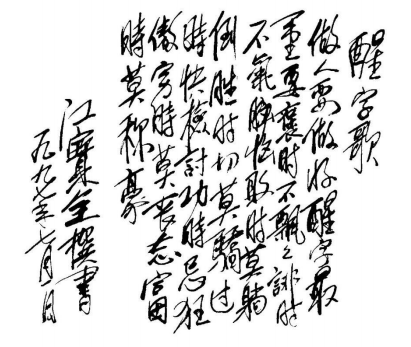 醒字歌
做人要做好醒字最
重要褒时不飘々誹时
不氣敗时莫躺
倒胜时切莫驕过
时快檢討功時忌狂
傲穷時莫丧志富
時莫豪
江全撰書
一九九七年七月一日